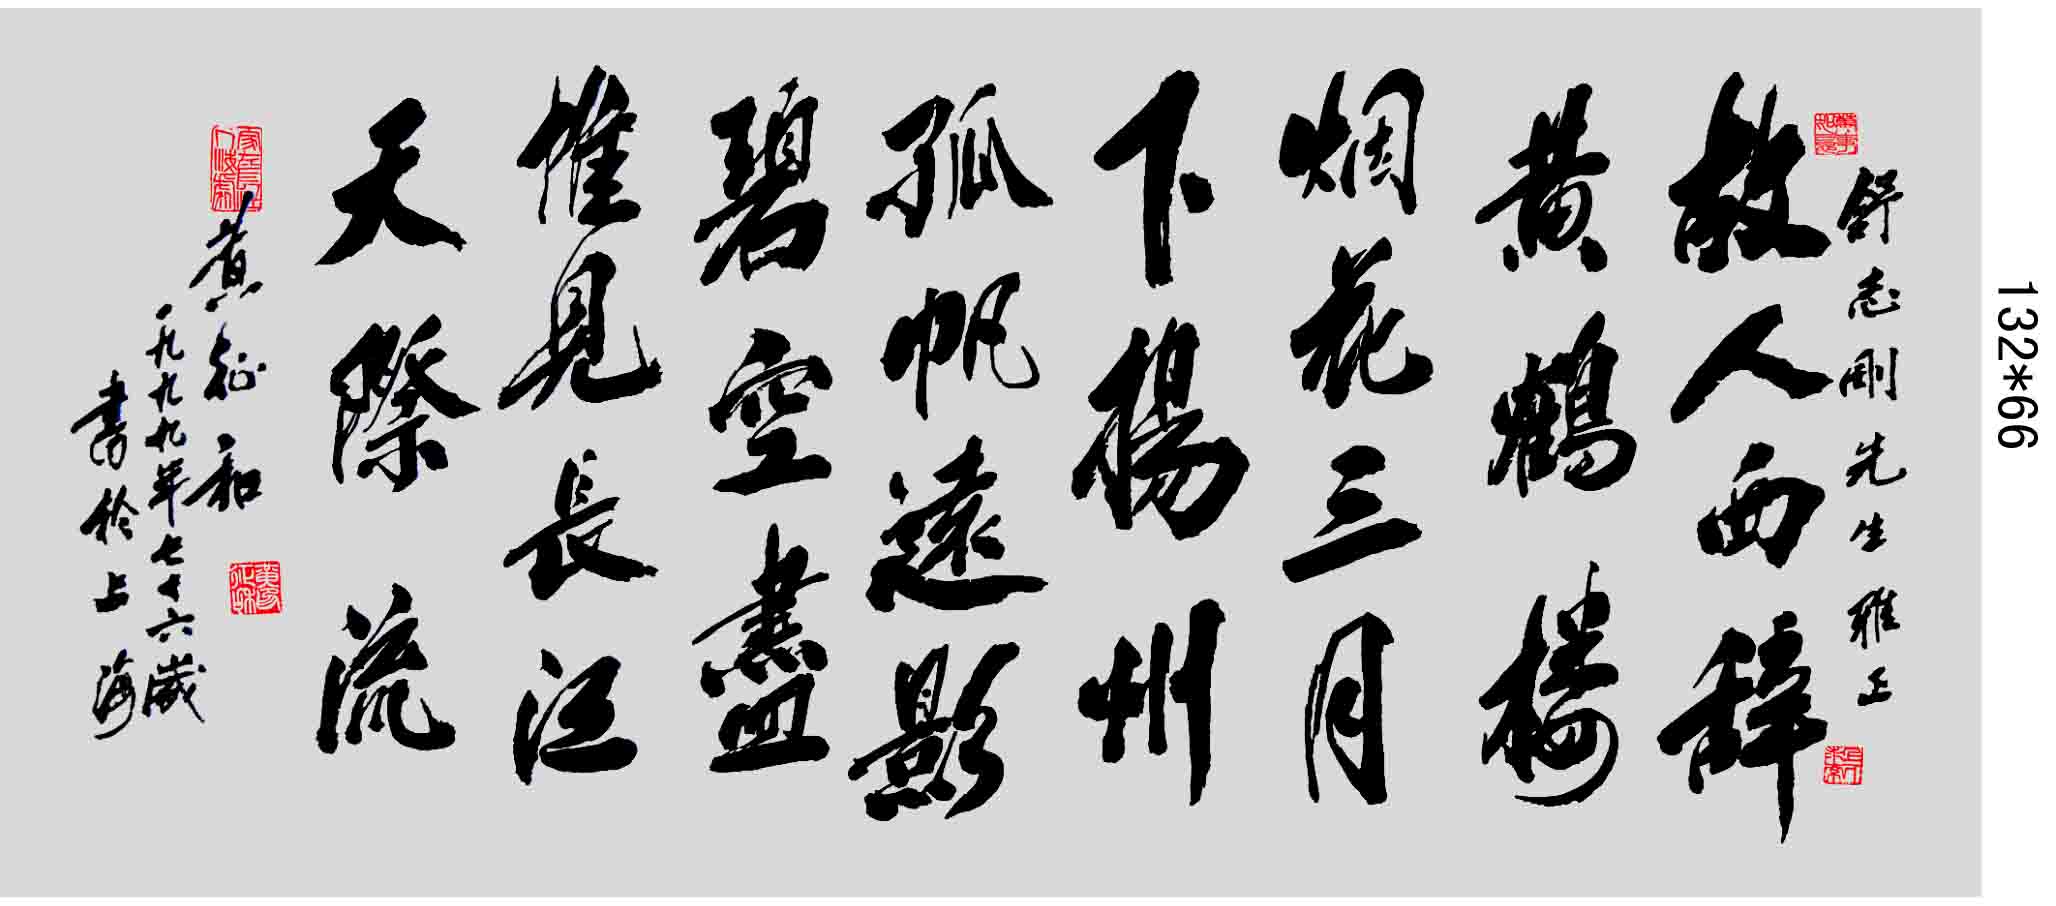 舒志剛先生雅正
故人西辞
黄鶴楼
烟花三月
下揚州
孤帆遠影
碧空盡
惟見長江
天際流
黄征和
一九九九年七十六歲
書於上海
132*66